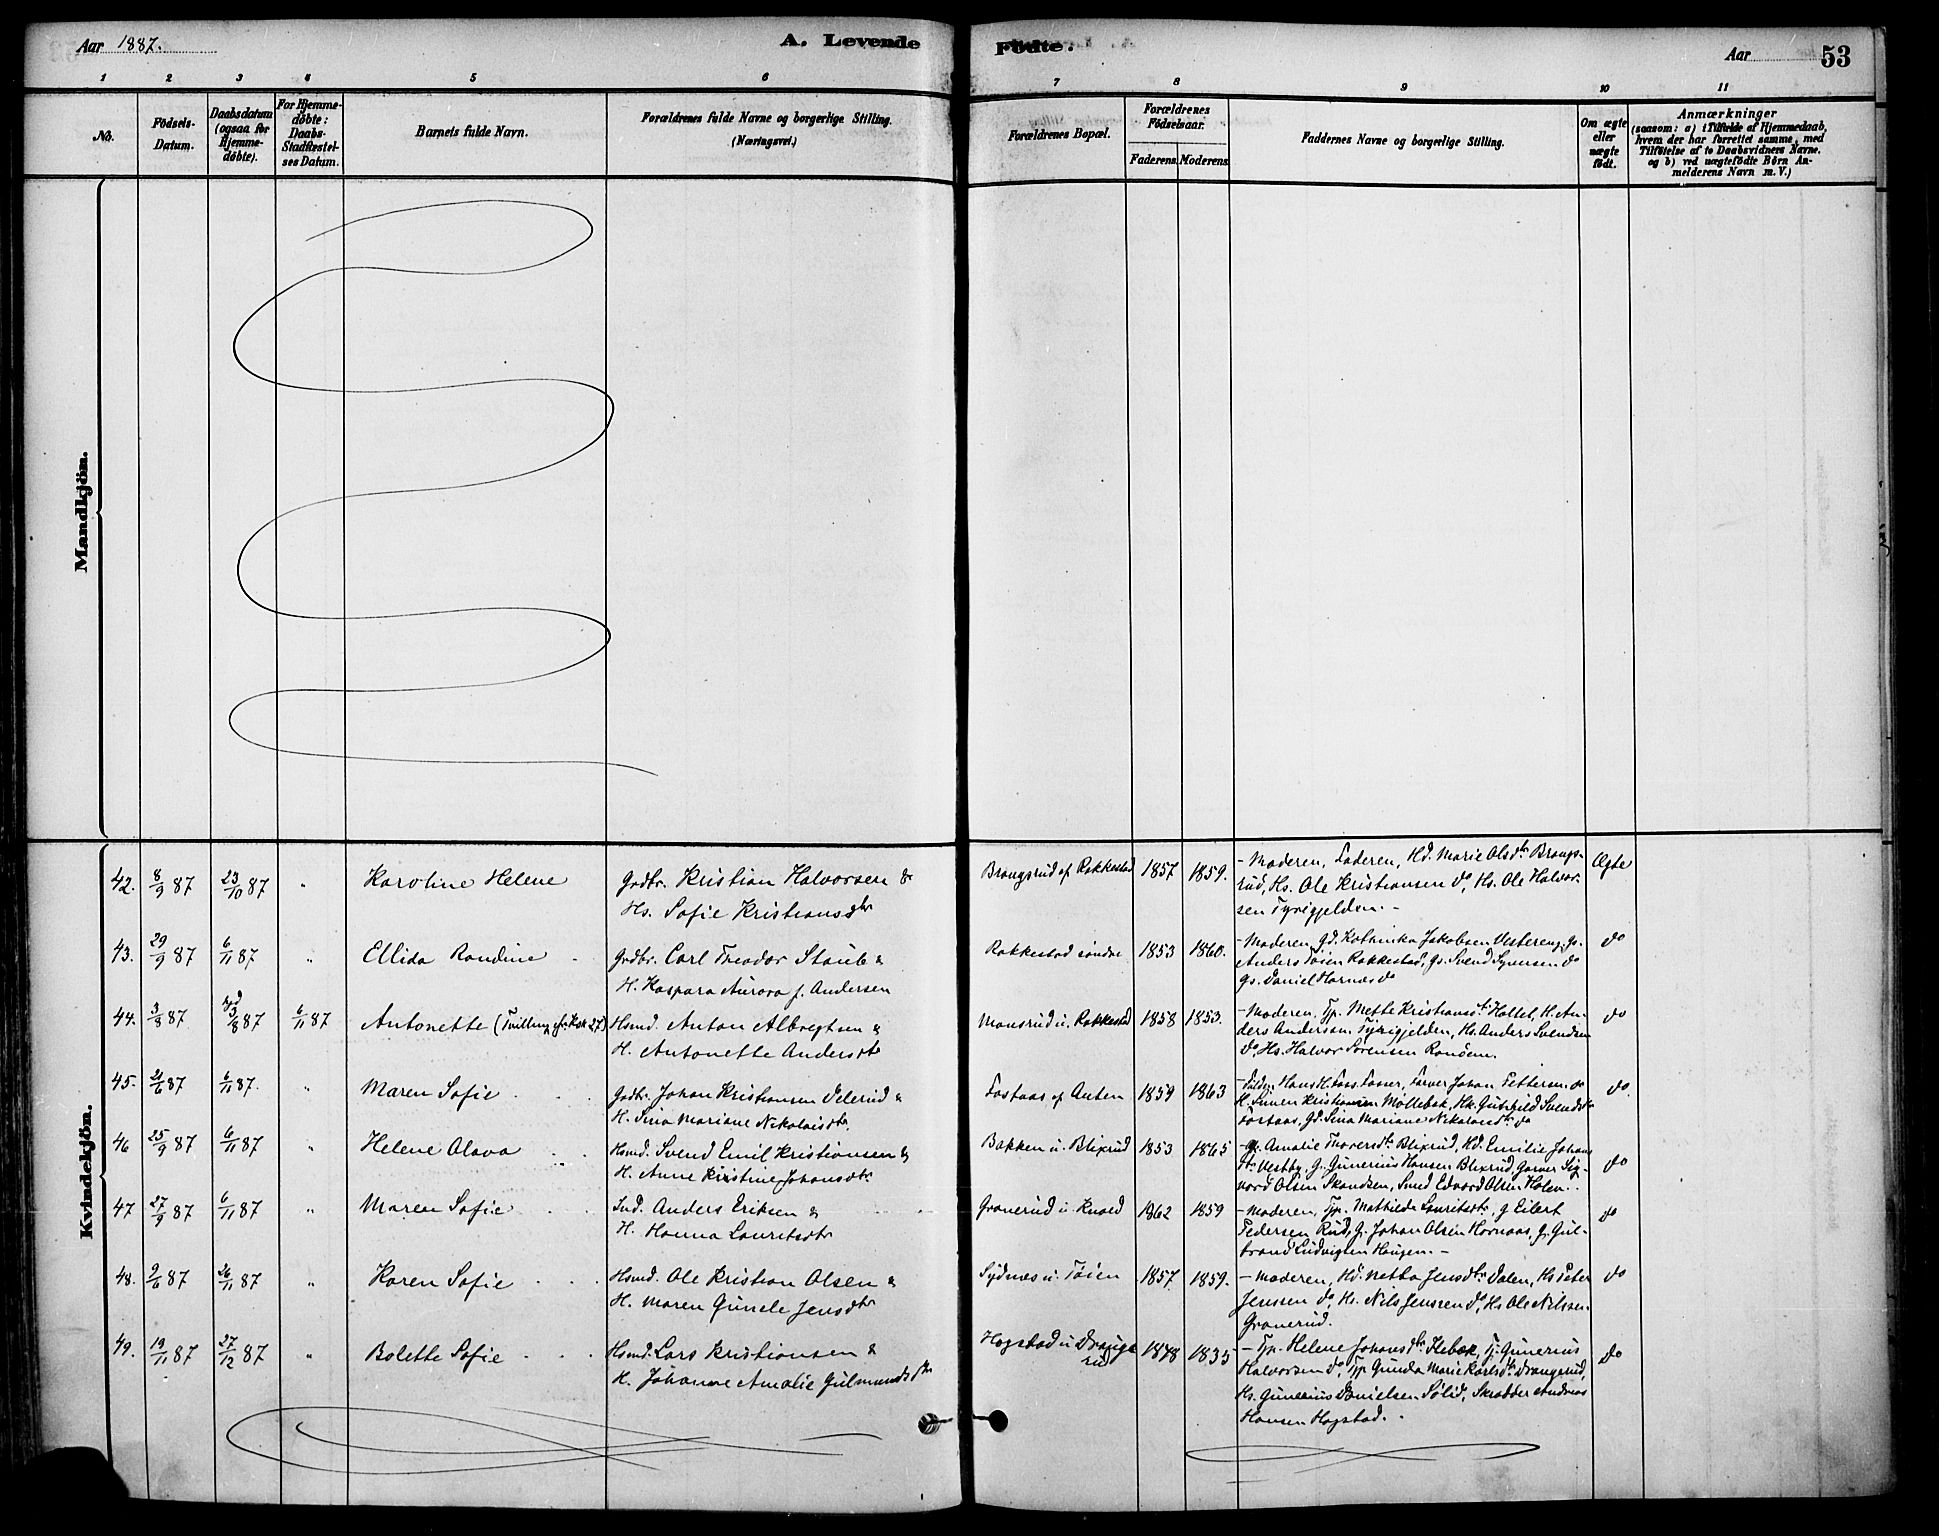 Aar 1887.
A. Levende
Födte.
Aar
53
1 2 3 4 5 6 7 8 9 10 11
No.
Födsels-
Datum.
Daabsdatum
(ogsaa for
Hjemme-
döbte).
For Hjemme-
döbte:
Daabs-
Stadfæstel-
ses Datum.
Barnets fulde Navn.
Forældrenes fulde Navne og borgerlige Stilling.
(Næringsvei.)
Forældrenes Bopæl.
Forældrenes
Födselsaar.
Faderens. Moderens.
Faddernes Navne og borgerlige Stilling.
Om ægte
eller
uægte
födt.
Anmærkninger
(saasom: a) i Tilfælde af Hjemmedaab,
hvem der har forrettet samme, med
Tilföielse af to Daabsvidners Navne.
og b) ved uægtefödte Börn An-
melderens Navn m. V.)
Mandkjön.
Kvindekjön.
42. 8/9 87 23/10 87 " Karoline Helene
Grdbr. Kristian Halvorsen &
Hs. Sofie Kristiansdtr
Brangsrud af Rakkestad 1857 1859.
- Moderen, Faderen, Hd. Marie Olsdtr Brangs-
rud, Hs. Ole Kristiansen do, Hs. Ole Halvor-
sen Tyrigjelden. -
Ægte
43. 29/9 87 6/11 87 " Ellida Randine
Grdbr. Carl Theodor Staub &
H. Kaspara Aurora f. Andersen
Rakkestad söndre 1853 1860.
- Moderen, Gd. Kathinka Jakobsen Vestereng, Gs.
Anders Töien Rakkestad, Gs. Svend Syversen do
Gs. Daniel Hornæs do
do
44. 3/8 87 3/8 87 6/11 87 Antonette (Tvilling af Msk 27)
Hsmd. Anton Albregtsen &
H. Antonette Andersdtr
Monsrud u. Rakkestad 1858 1853.
- Moderen, Tp. Mette Kristiansdtr Holtet, H. An-
ders Andersen Tyrigjelden, Hs. Anders Svendsen
do, Hs. Halvor Sørensen Ronöen.
do
45. 21/6 87 6/11 87. " Maren Sofie
Grdbr. Johan Kristiansen Velerud &
H. Sina Mariane Nikolaisdtr.
Fostaas af Anten 1859 1863
Hans H. Foss Fosser, Farver Johan Pettersen do
H. Simen Kristiansen Möllebak, Hk. Gunhild Svendsdtr
Fostaas, Gd. Sina Mariane Nikolaisdtr do
do.
46 25/9 87 6/11 87 " Helene Olava
Hsmd. Svend Emil Kristiansen &
H. Anne Kristine Johansdtr.
Bakken u. Blixrud 1853 1865
Amalie Thoresdtr Blixrud, Hd. Emilie Johans
dtr Vestby, G. Gunerius Hansen Blixrud, Garver Sig-
vard Olsen Skandsen, Smed Edvard Olsen Holen.
do
47 27/9 87 6/11 87 " Maren Sofie
Ind. Anders Eriksen &
H. Hanna Lauritsdtr
Granerud u. Knold 1862 1859
- Moderen, Tp. Mathilde Lauritsdtr, G. Eilert
Pedersen Rud, G. Johan Olsen Hornæs, G. Gul-
brand Ludvigsen Haugen. -
do
48. 9/6 87 26/11 87 " Karen Sofie
Hsmd. Ole Kristian Olsen &
H. Maren Gunele Jensdtr
Sydnæs u. Töien 1857. 1859.
- Moderen, Hd. Netta Jensdtr Dalen, Hs Peter
Jenssen do, Hs. Nils Jenssen do, Hs Ole Nilssen
Granerud.
do
49. 19/11 87 27/12 87 " Bolette Sofie
Hsmd. Lars Kristiansen &
H. Johanne Amalie Gulmundsdtr
Hagstad u Drangs
rud 1848 1835
- Tp. Helene Johansdtr Flebæk, G. Gunerius
Halvorsen do, Tp. Gunda Marie Karlsdtr Drangsrud,
Hs. Gunerius Danielsen Sölid, Skrædder Andreas
Hansen Hagstad. -
do